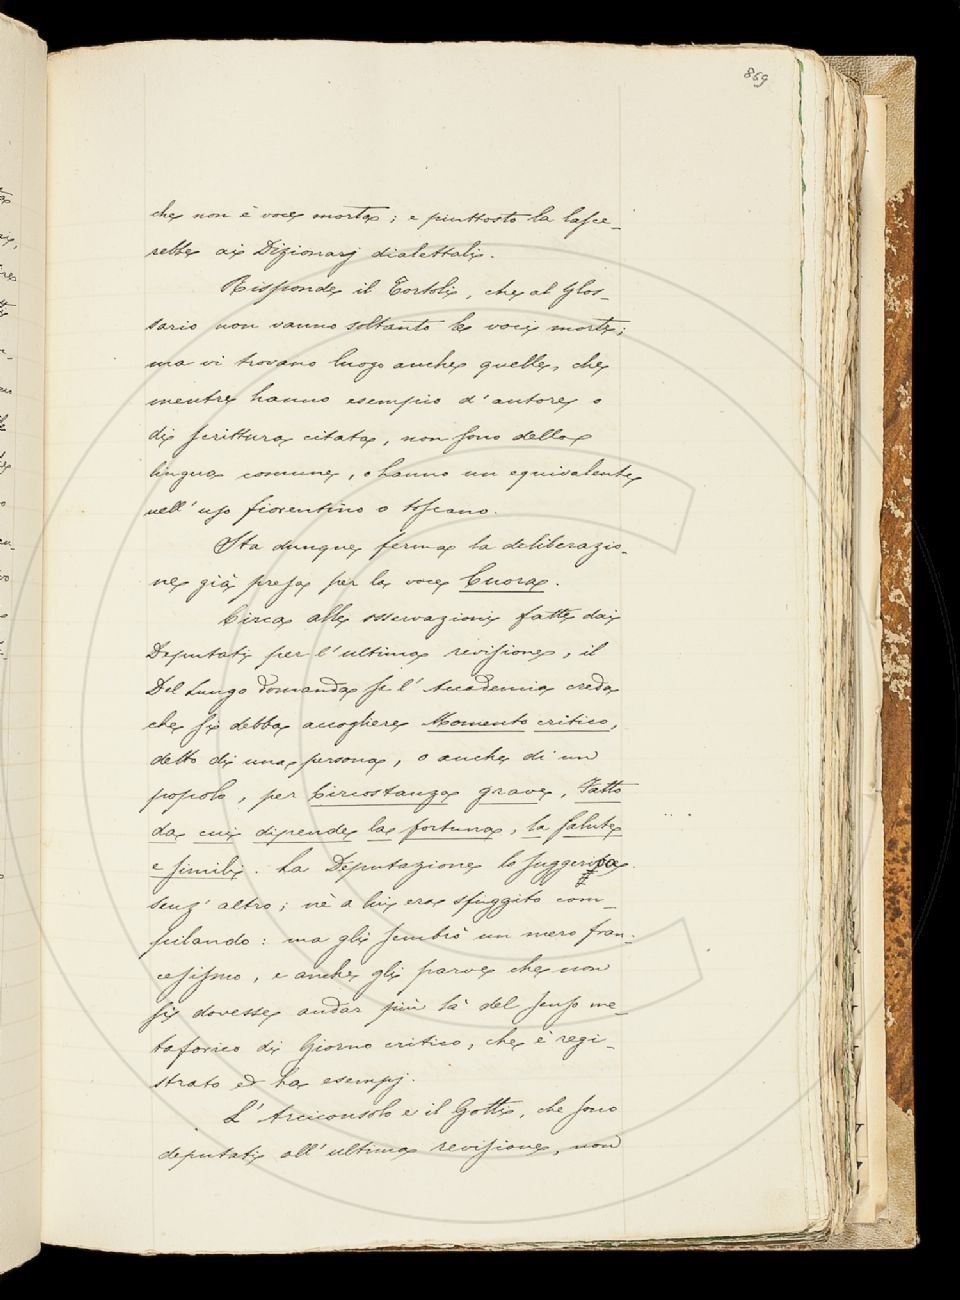 869
che non è voce morta; e piuttosto la lasce_
rebbe ai Dizionarj dialettali.
Risponde il Tortoli, che al Glos_
sario non vanno soltanto le voci morte;
ma vi trovano luogo anche quelle, che
mentre hanno esempio d'autore o
di scrittura citata, non sono della
lingua comune, o hanno un equivalente
nell'uso fiorentino o toscano.
Sta dunque ferma la deliberazio_
ne già presa per la voce Cuora.
Circa alle osservazioni fatte dai
Deputati per l'ultima revisione, il
Del Lungo domanda se l'Accademia creda
che si debba accogliere Momento critico,
detto di una persona, o anche di un
popolo, per Circostanza grave, Fatto
da cui dipende la fortuna, la salute
e simili. La Deputazione lo suggeriva
senz'altro; nè a lui era sfuggito com_
pilando: ma gli sembrò un mero fran_
cesismo, e anche gli parve che non
si dovesse andar più là del senso me_
taforico di Giorno critico, che è regi_
strato ed ha esempj.
L'Arciconsolo e il Gotti, che sono
deputati all'ultima revisione, non